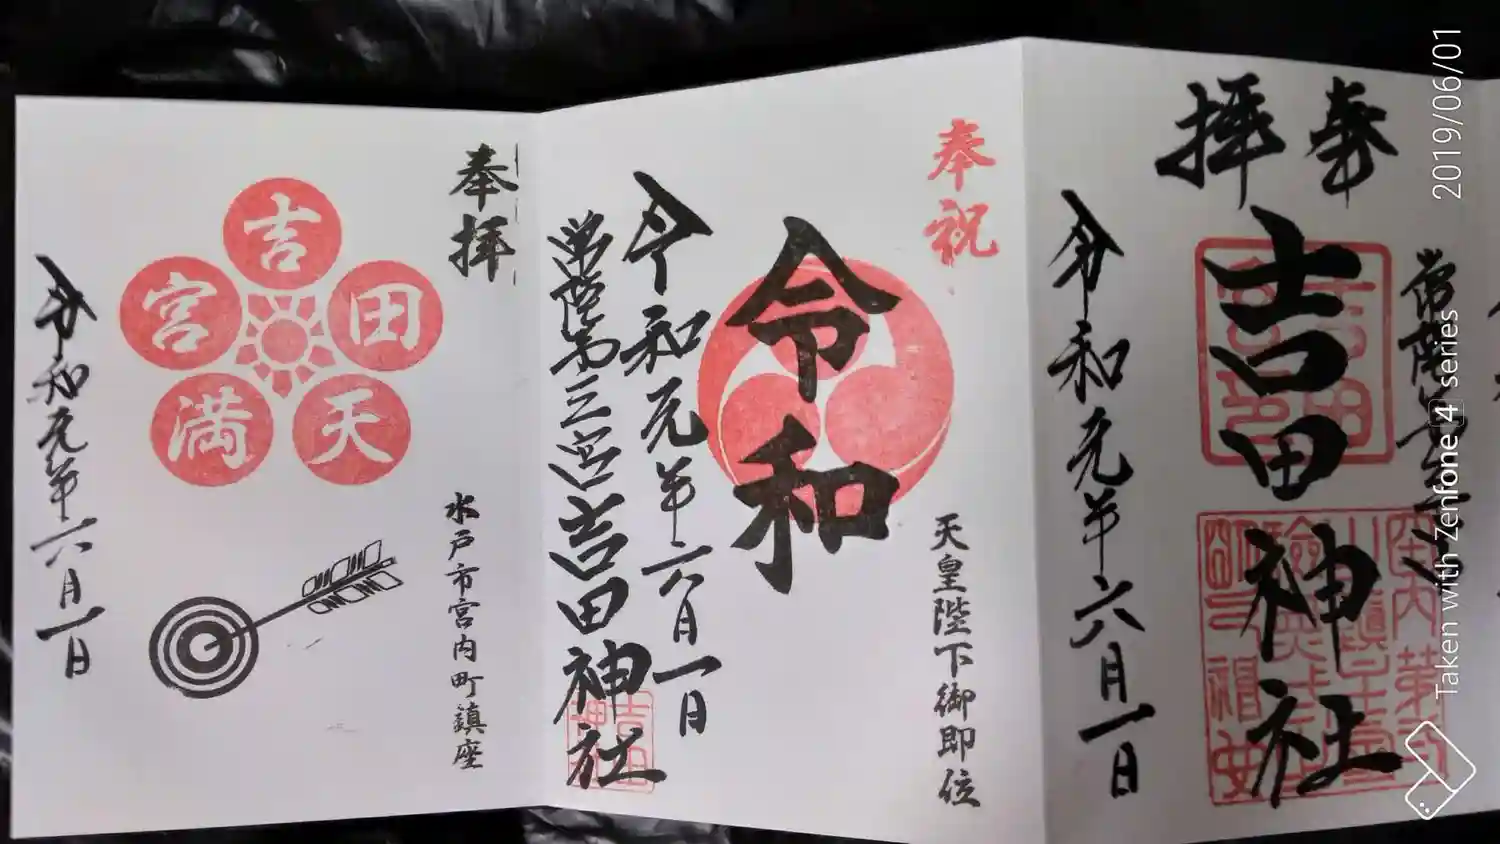 奉拝
常陸第三宮
吉田神社
令和元年六月一日
奉祝
天皇陛下御即位
令和
令和元年六月一日
常陸第三宮 吉田神社
奉拝
水戸市宮内町鎮座
吉
田
天
満
宮
令和元年六月一日
2019/06/01
Taken with Zenfone 4 series